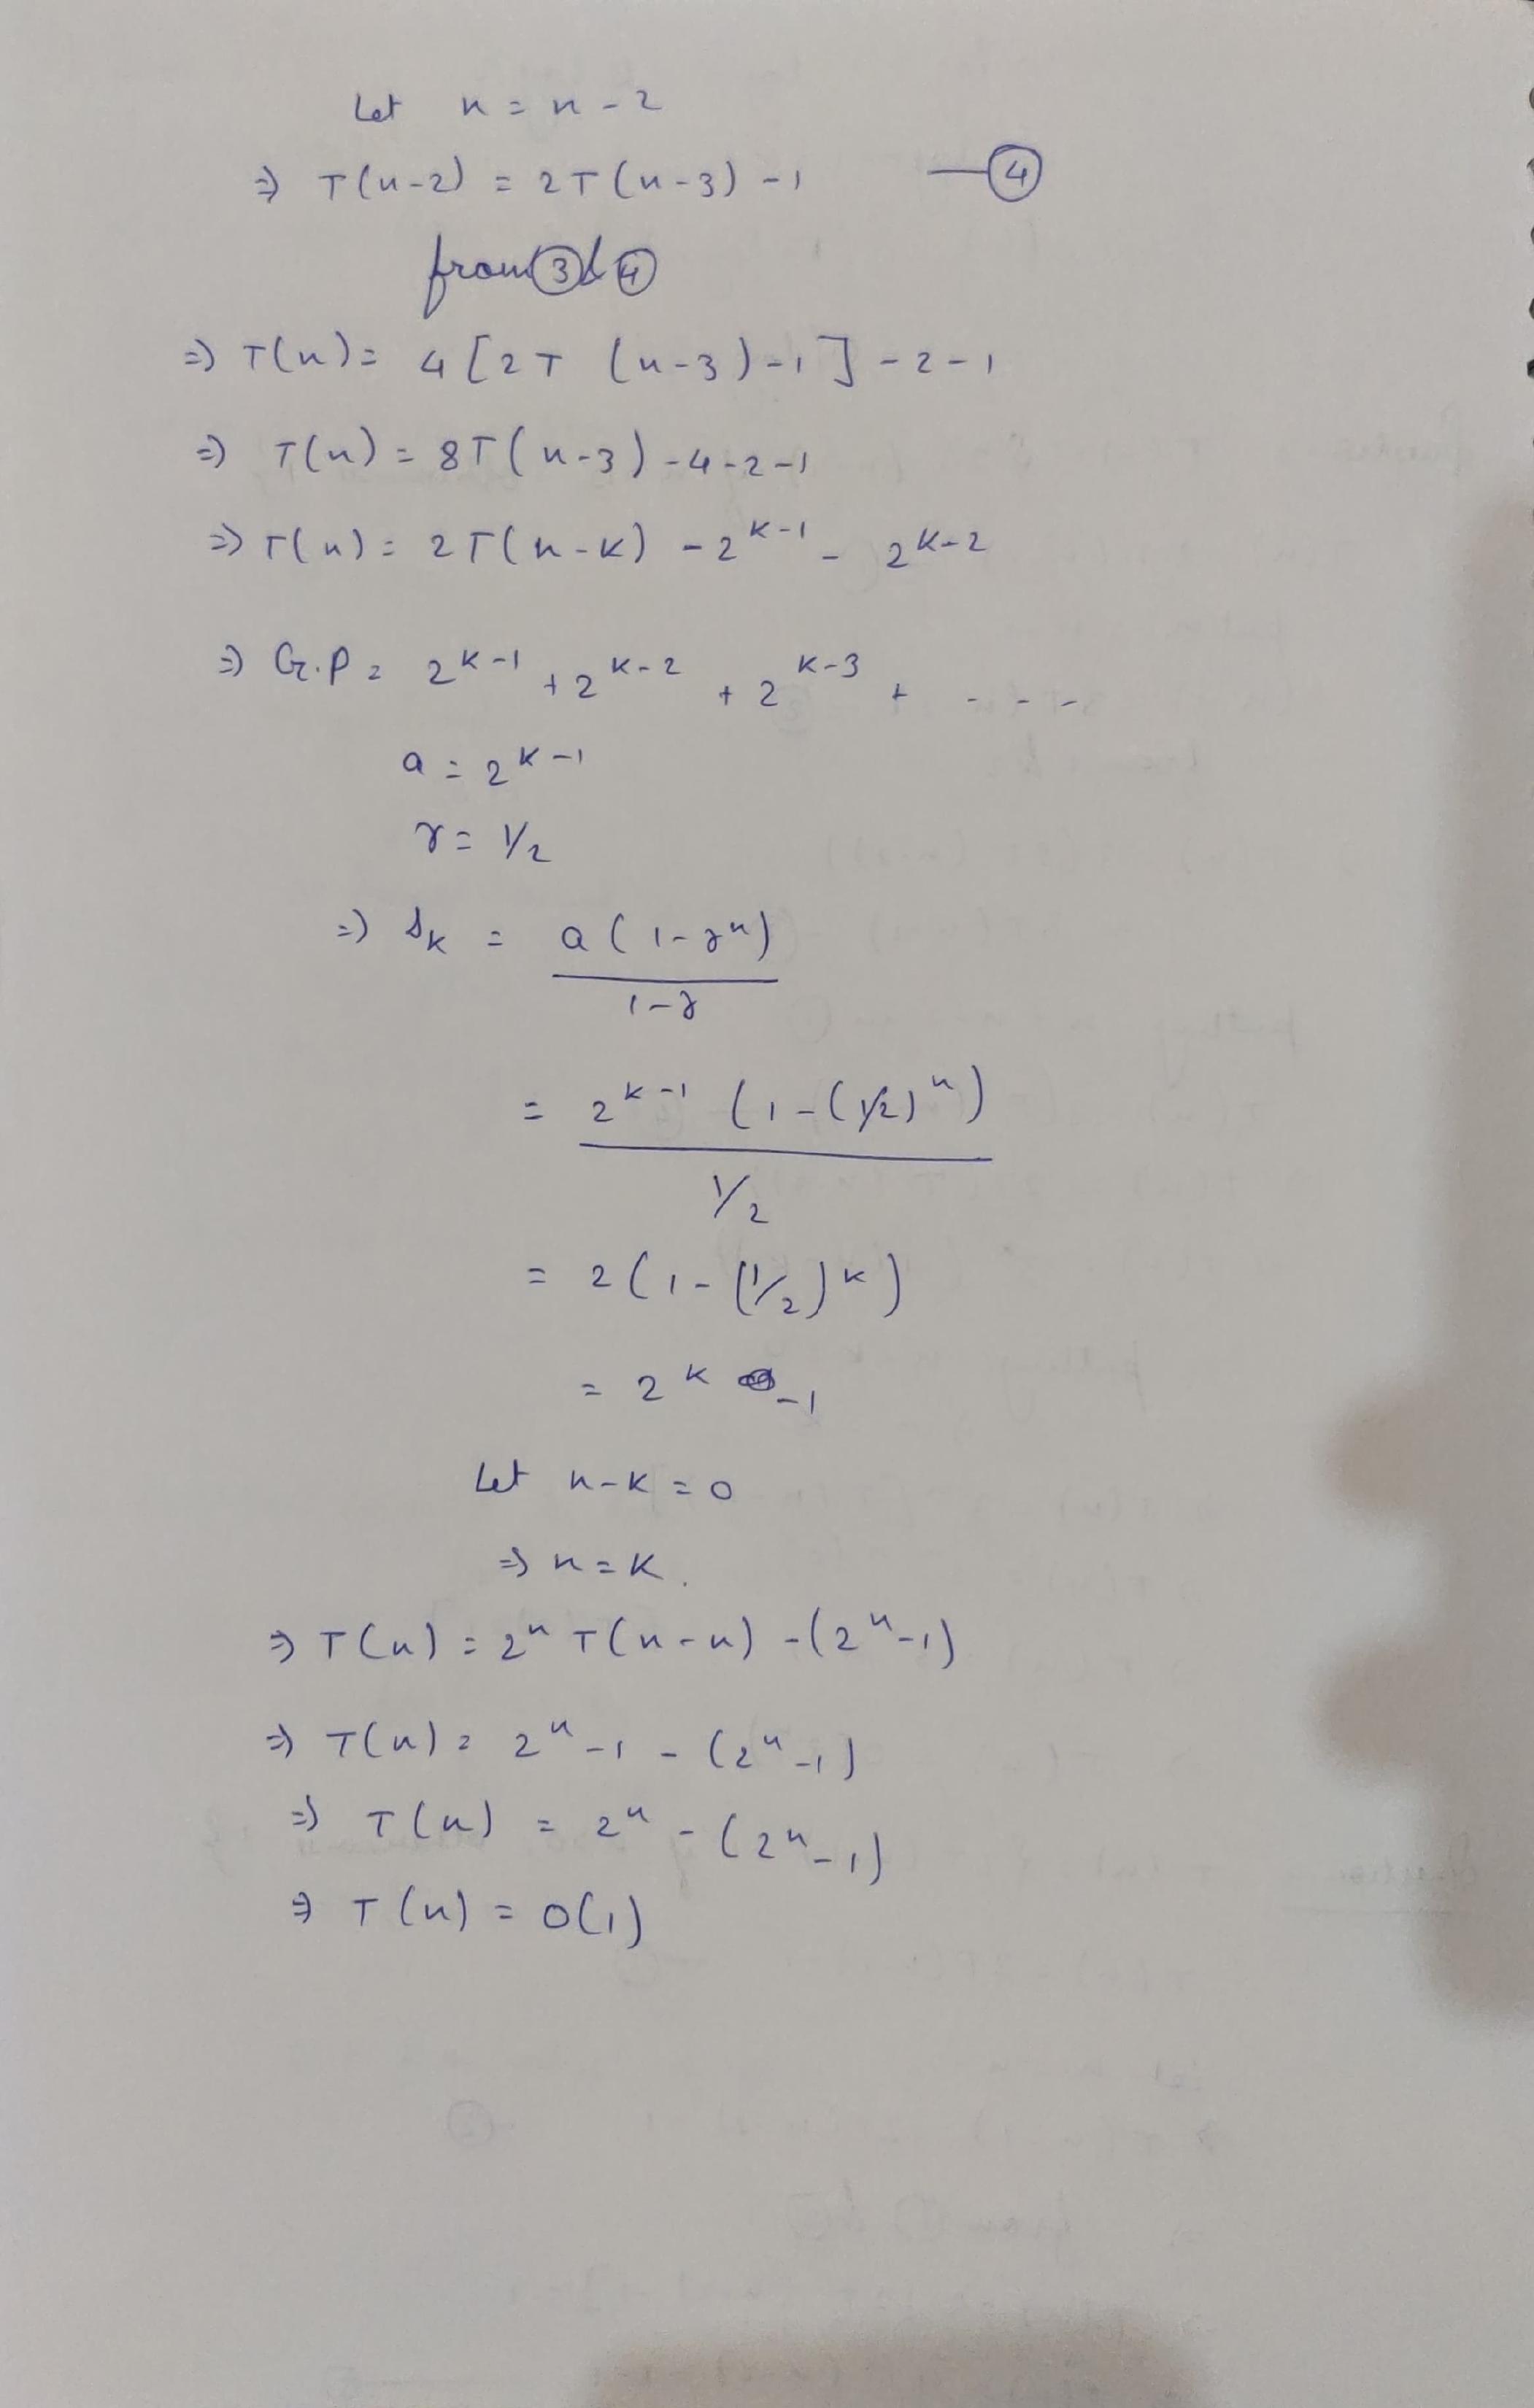 Let n = n - 2
⇒ T(n-2) = 2T(n-3) - 1 —④
from ③ & ④
⇒ T(n) = 4[2T (n-3) - 1] - 2 - 1
⇒ T(n) = 8T(n-3) - 4 - 2 - 1
⇒ T(n) = 2T(n-k) - 2^{k-1} - 2^{k-2}
⇒ G.P = 2^{k-1} + 2^{k-2} + 2^{k-3} + - - -
a = 2^{k-1}
r = 1/2
⇒ S_k = a(1-r^n)
1-r
= 2^{k-1} (1-(1/2)^n)
1/2
= 2(1-(1/2)^k)
= 2^k - 1
Let n-k = 0
⇒ n = k.
⇒ T(n) = 2^n T(n-n) - (2^n-1)
⇒ T(n) = 2^n - 1 - (2^n-1)
⇒ T(n) = 2^n - (2^n-1)
⇒ T(n) = O(1)